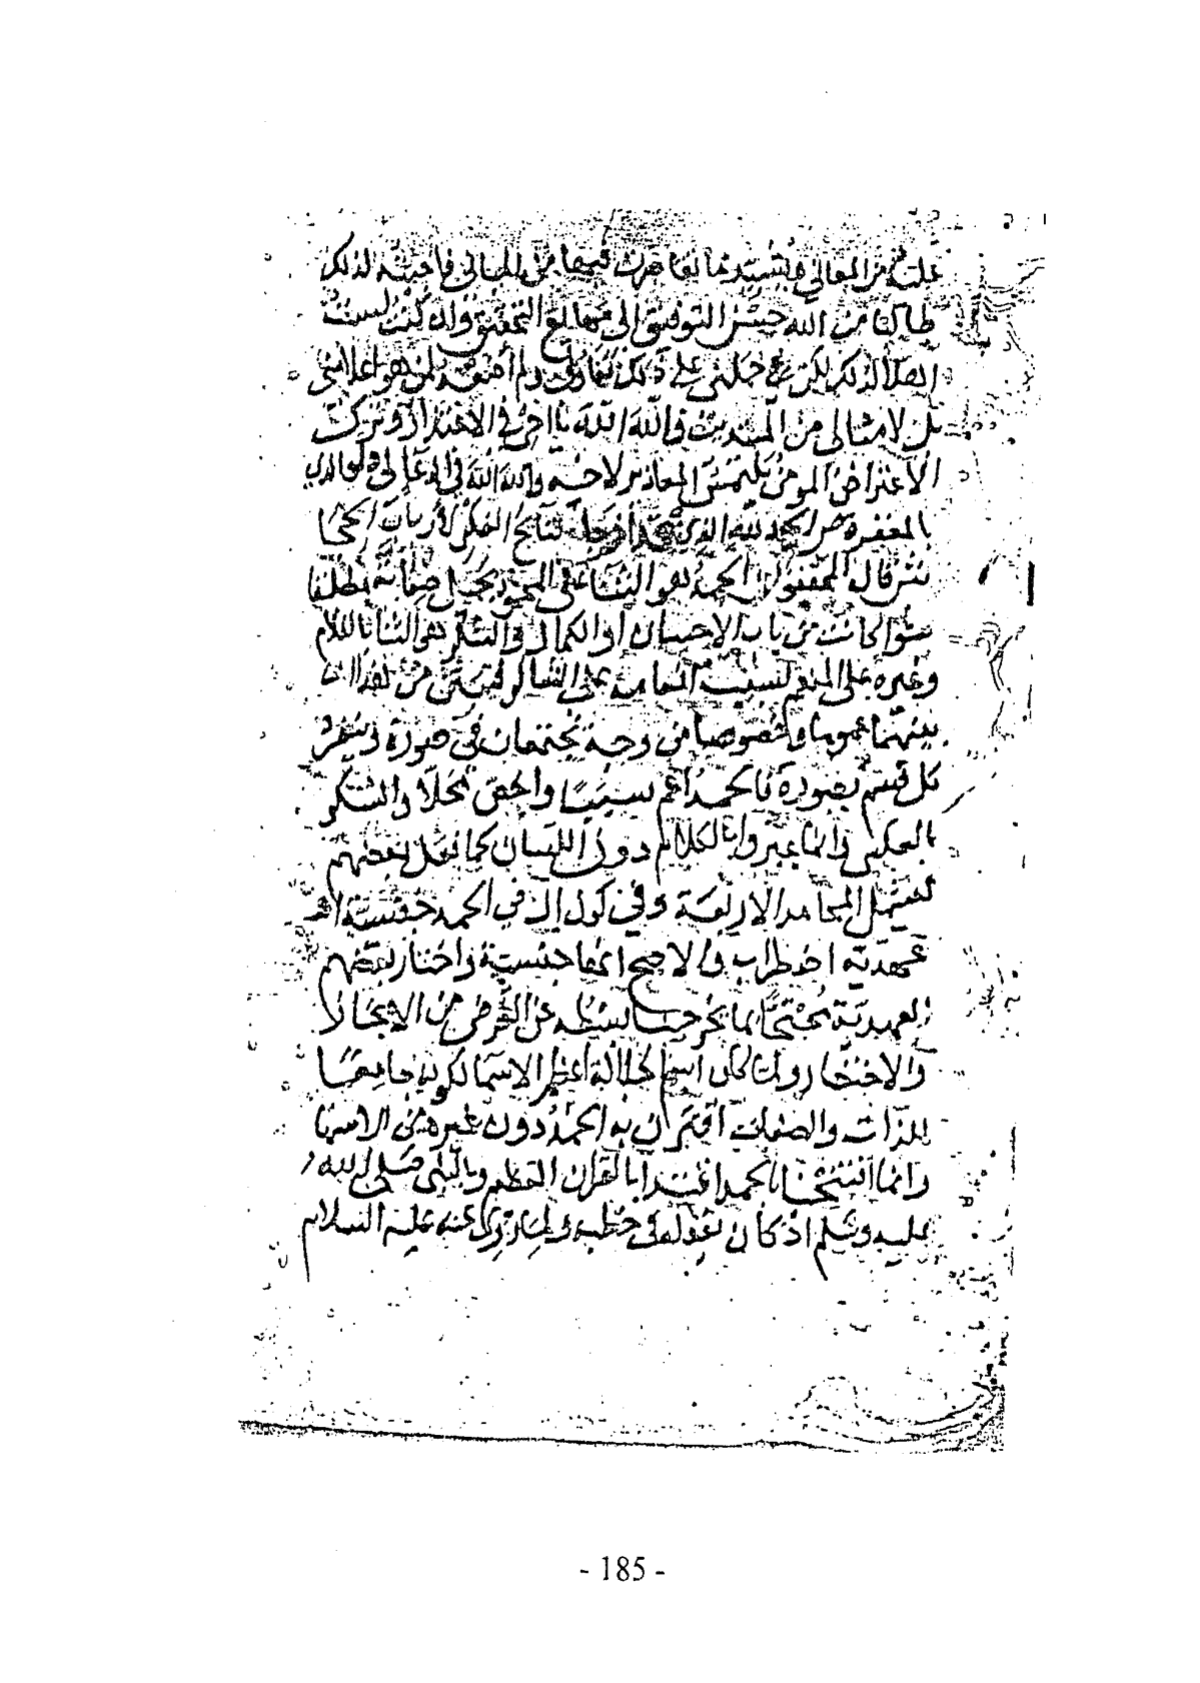 عليه من المعاني ويشيد ما تقاصرت فيها من المباني فاجبته لذلك
طالبا من الله حسن التوفيق الى مهايع التحقيق وان كنت لست
اهلا لذلك لكن حملني على ذلك ولم اضعه لمن هو اعلا مني
بل لامثالي من المبتدين فالله الله يا اخي في الاعتذار وترك
الاعتراض المومن يلتمس المعاذير لاخيه والله الله في الدعا لي ولوالدي
بالمغفرة ص الحمد لله الذي قد اخرجا نتايج الفكر لارباب الحجا
ش قال المحققون الحمد هو الثنا على المحمود بجميل صفاته مطلقا
سوا كانت من باب الاحسان او الكمال والشكر هو الثنا باللام
وغيره على المنعم بسبب انعامه على الشاكر فتبين من هذا ان
بينهما عموما وخصوصا من وجه يجتمعان في صورة وينفرد
كل قسم بصورة فالحمد اعم سببا واخص محلا والشكر
بالعكس وانما عبروا بالكلام دون اللسان كما نقل بعضهم
ليشمل المحامد الاربعة وفي كون ال في الحمد جنسية او
عهدية اضطراب والاصح انها جنسية واختار بعضهم
العهدية محتجا بما يخرجنا بسطه عن الغرض من الايجاز
والاختصار ولما كان اسم الجلالة اعظم الاسما لكونه جامعا
للذات والصفات اقترن به الحمد دون غيره من الاسما
وانما افتتحنا بالحمد اقتدا بالقران العظيم وبالنبي صلى الله
عليه وسلم اذ كان يقوله في خطبه ولما روي عنه عليه السلام
- 185 -